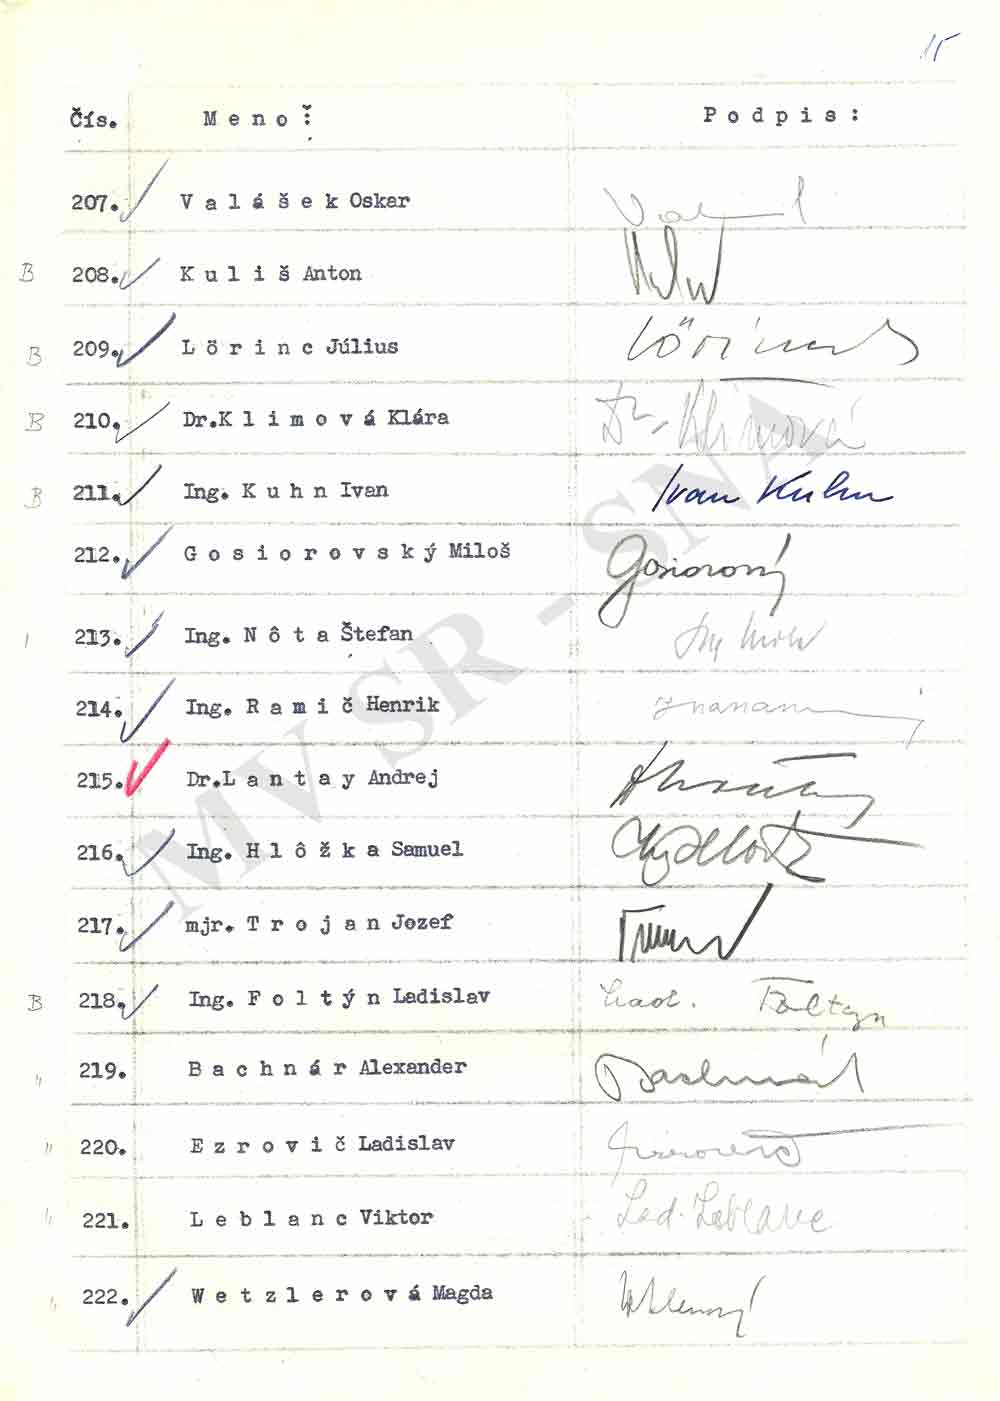 15
Čís. Meno: Podpis:
207. Valášek Oskar
B 208. Kuliš Anton
B 209. Lörinc Július Lőrinc
B 210. Dr.Klimová Klára Dr. Klimová
B 211. Ing. Kuhn Ivan Ivan Kuhn
212. Gosiorovský Miloš
213. Ing. Nôta Štefan
214. Ing. Ramič Henrik
215. Dr.Lantay Andrej
216. Ing. Hlôžka Samuel
217. mjr. Trojan Jozef
B 218. Ing. Foltýn Ladislav Lad. Foltyn
219. Bachnár Alexander Bachnár
220. Ezrovič Ladislav
221. Leblanc Viktor Leblanc
222. Wetzlerová Magda
MV SR - SNA